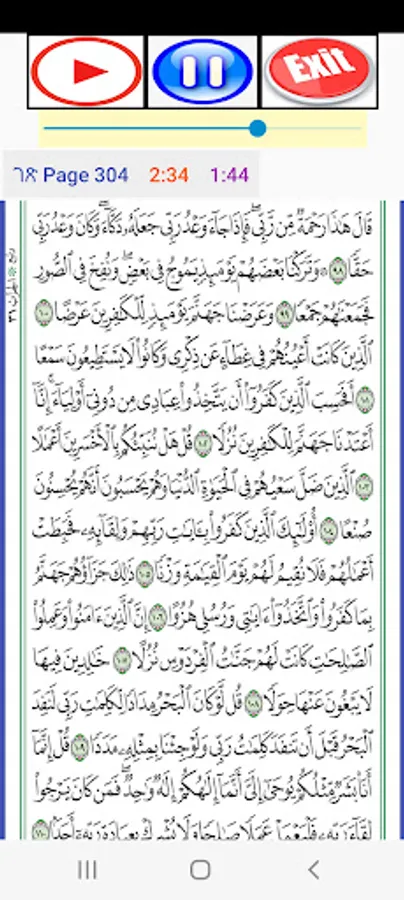 Exit
ገጽ Page 304 2:34 1:44
قَالَ هَٰذَا رَحْمَةٌ مِّن رَّبِّي فَإِذَا جَاءَ وَعْدُ رَبِّي جَعَلَهُ دَكَّاءَ وَكَانَ وَعْدُ رَبِّي
حَقًّا ٩٨ وَتَرَكْنَا بَعْضَهُمْ يَوْمَئِذٍ يَمُوجُ فِي بَعْضٍ وَنُفِخَ فِي الصُّورِ
فَجَمَعْنَاهُمْ جَمْعًا ٩٩ وَعَرَضْنَا جَهَنَّمَ يَوْمَئِذٍ لِّلْكَافِرِينَ عَرْضًا ١٠٠
الَّذِينَ كَانَتْ أَعْيُنُهُمْ فِي غِطَاءٍ عَن ذِكْرِي وَكَانُوا لَا يَسْتَطِيعُونَ سَمْعًا
١٠١ أَفَحَسِبَ الَّذِينَ كَفَرُوا أَن يَتَّخِذُوا عِبَادِي مِن دُونِي أَوْلِيَاءَ إِنَّا
أَعْتَدْنَا جَهَنَّمَ لِلْكَافِرِينَ نُزُلًا ١٠٢ قُلْ هَلْ نُنَبِّئُكُم بِالْأَخْسَرِينَ أَعْمَالًا
١٠٣ الَّذِينَ ضَلَّ سَعْيُهُمْ فِي الْحَيَاةِ الدُّنْيَا وَهُمْ يَحْسَبُونَ أَنَّهُمْ يُحْسِنُونَ
صُنْعًا ١٠٤ أُولَٰئِكَ الَّذِينَ كَفَرُوا بِآيَاتِ رَبِّهِمْ وَلِقَائِهِ فَحَبِطَتْ
أَعْمَالُهُمْ فَلَا نُقِيمُ لَهُمْ يَوْمَ الْقِيَامَةِ وَزْنًا ١٠٥ ذَٰلِكَ جَزَاؤُهُمْ جَهَنَّمُ
بِمَا كَفَرُوا وَاتَّخَذُوا آيَاتِي وَرُسُلِي هُزُوًا ١٠٦ إِنَّ الَّذِينَ آمَنُوا وَعَمِلُوا
الصَّالِحَاتِ كَانَتْ لَهُمْ جَنَّاتُ الْفِرْدَوْسِ نُزُلًا ١٠٧ خَالِدِينَ فِيهَا
لَا يَبْغُونَ عَنْهَا حِوَلًا ١٠٨ قُل لَّوْ كَانَ الْبَحْرُ مِدَادًا لِّكَلِمَاتِ رَبِّي لَنَفِدَ
الْبَحْرُ قَبْلَ أَن تَنفَدَ كَلِمَاتُ رَبِّي وَلَوْ جِئْنَا بِمِثْلِهِ مَدَدًا ١٠٩ قُلْ إِنَّمَا
أَنَا بَشَرٌ مِّثْلُكُمْ يُوحَىٰ إِلَيَّ أَنَّمَا إِلَٰهُكُمْ إِلَٰهٌ وَاحِدٌ فَمَن كَانَ يَرْجُو
لِقَاءَ رَبِّهِ فَلْيَعْمَلْ عَمَلًا صَالِحًا وَلَا يُشْرِكْ بِعِبَادَةِ رَبِّهِ أَحَدًا ١١٠